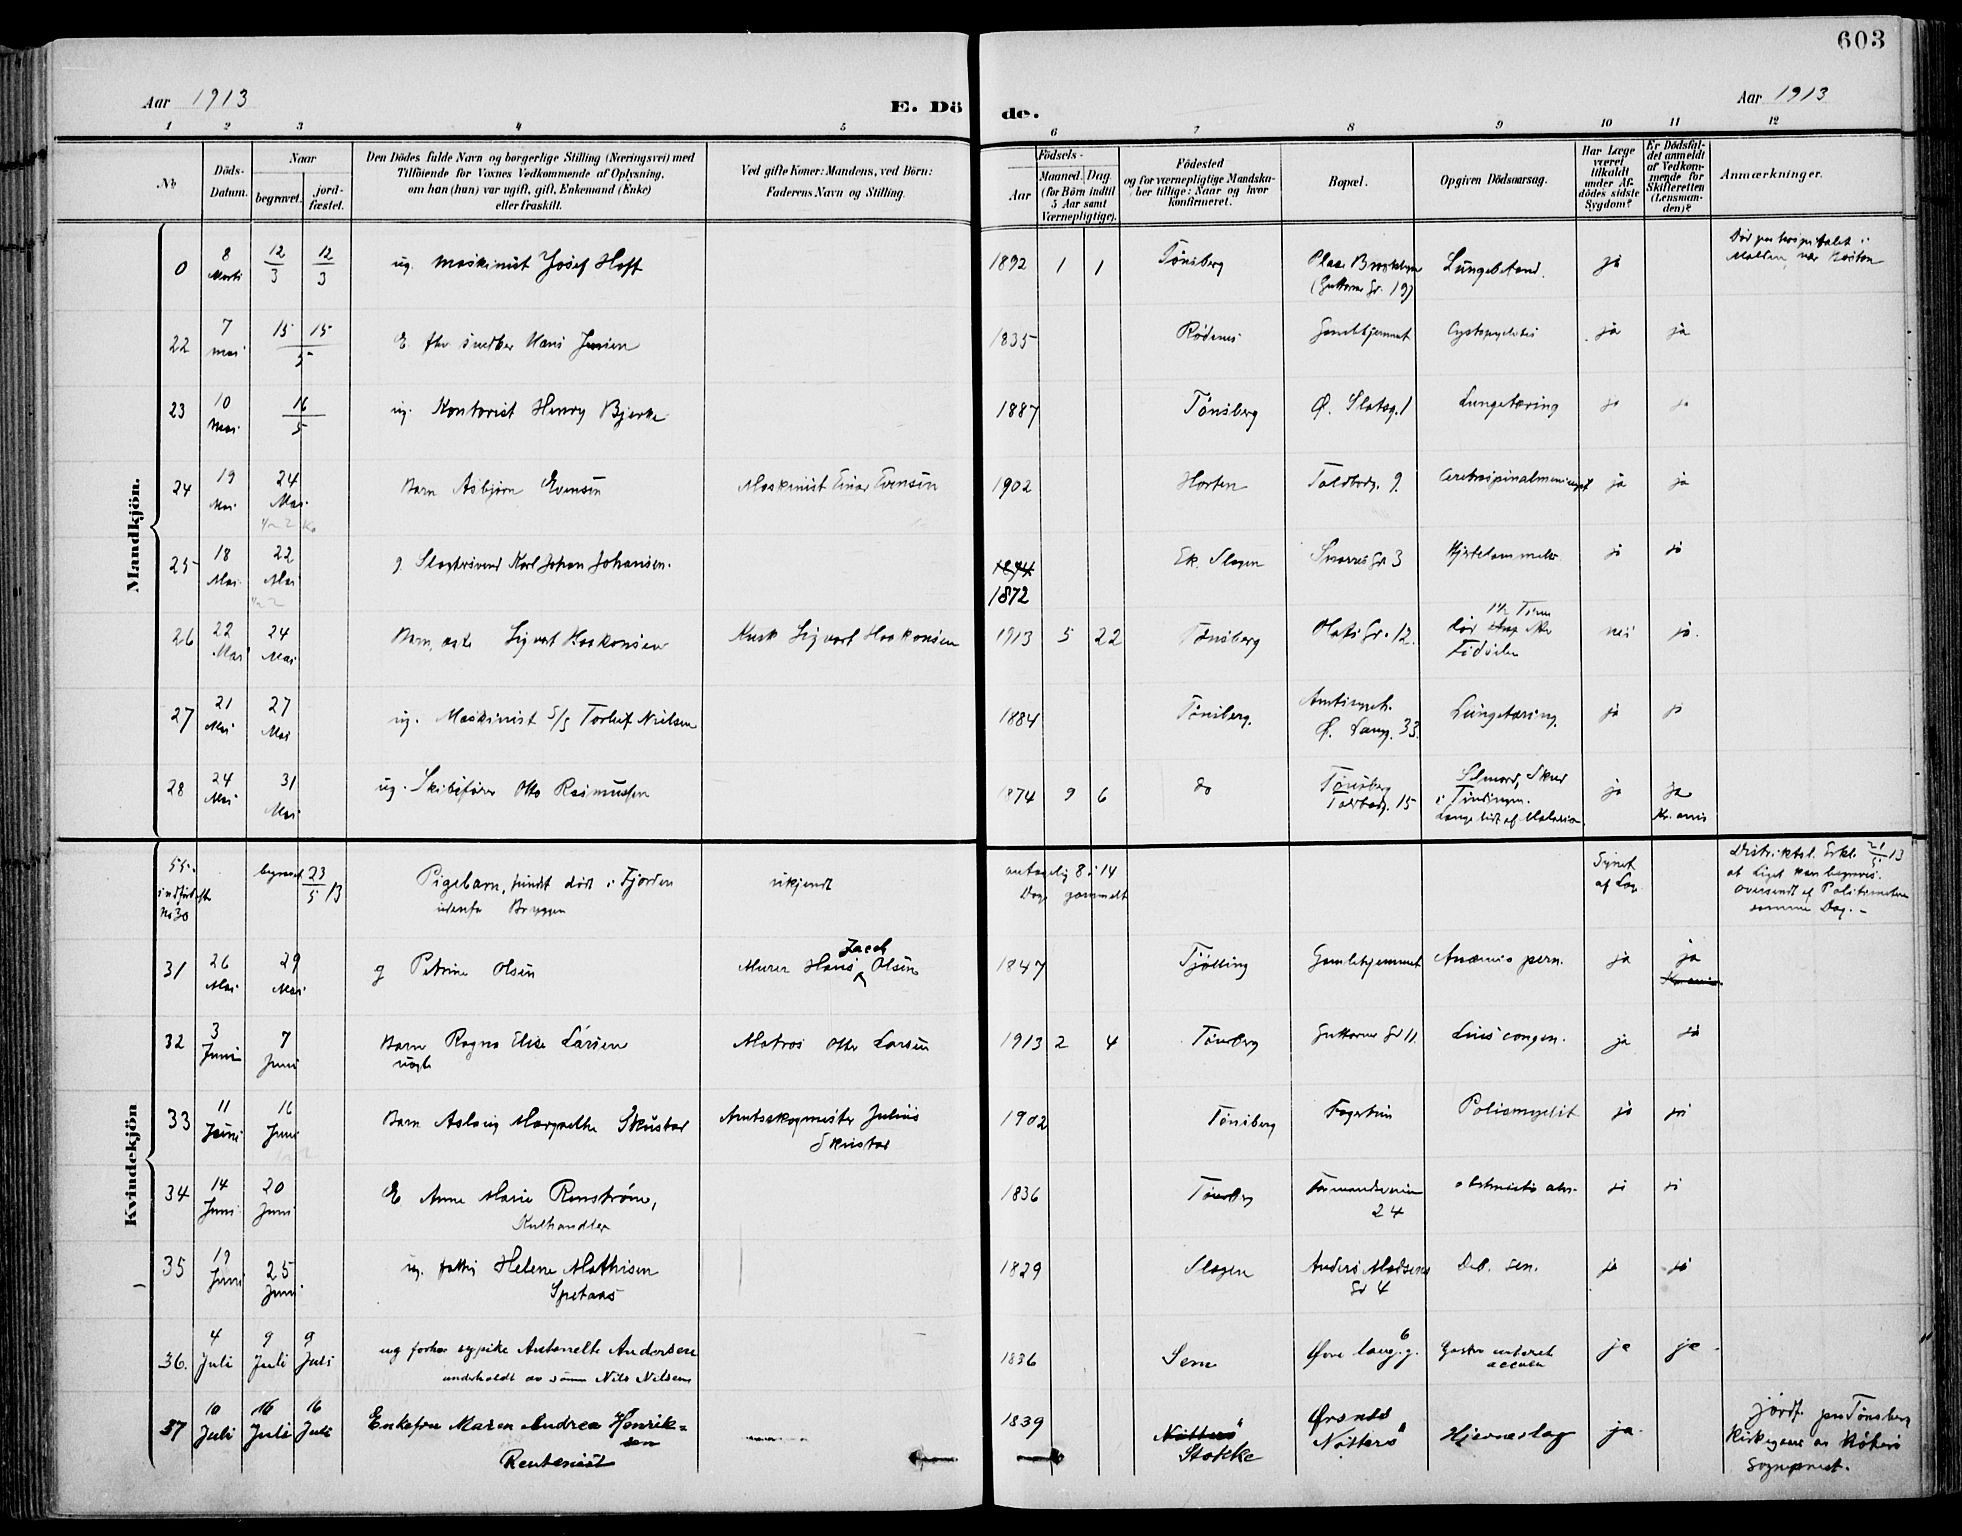 603
Aar 1913
E. Döde.
Aar 1913
1 2 3 4 5 6 7 8 9 10 11 12
No
Döds-Datum.
Naar
begravet.
jord-fæstet.
Den Dödes fulde Navn og borgerlige Stilling (Næringsvei) med
Tilföiende for Voxnes Vedkommende af Oplysning,
om han (hun) var ugift, gift, Enkemand (Enke)
eller fraskilt.
Ved gifte Koner: Mandens, ved Börn:
Faderens Navn og Stilling.
Födsels-
Aar
Maaned. Dag
(for Börn indtil
5 Aar samt
Værnepligtige).
Födested
og for værnepligtige Mandska-
ber tillige: Naar og hvor
konfirmeret.
Bopæl.
Opgiven Dödsaarsag.
Har Læge
været
tilkaldt
under Af-
dödes sidste
Sygdom?
Er Dödsfal-
det anmeldt
af Vedkom-
mende for
Skifteretten
(Lensman-
den)?
Anmærkninger.
Mandkjön.
0 8 Marts 12/3 12/3 ug. Maskinist Josef Hoff 1892 1 1 Tønsberg (Guttorms Gt. 19) Lungebetænd. ja
22 7 Mai 15 15/5 E fhv snedker Hans Jensen 1835 Rødenes Gamlehjemmet ja ja
23 10 Mai 16/5 ug. Kontorist Henry Bjerke 1887 Tønsberg Ø. Slotsg. 1 Lungetæring ja ja
24 19 Mai 24 Mai Barn Asbjørn Evensen Maskinist Einar Evensen 1902 Horten Toldbodg. 9. ja ja
25 18 Mai 22 Mai g. Slagtersvend Karl Johan Johansen. 1872 Ek. Slagen Snorres Gt 3 Hjertelammelse ja ja
26 22 Mai 24 Mai Barn, ægte Sigvart Haakonsen Kusk Sigvart Haakonsen 1913 5 22 Tønsberg Olafs Gt. 12. død 1½ Time efter Fødselen nei ja.
27 21 Mai 27 Mai ug. Maskinist S/S Torleif Nielsen 1884 Tønsberg. Amtssygeh. Ø. Langg. 33. Lungetæring. ja ja
28 24 Mai 31 Mai ug. Skibsfører Otto Rasmussen 1874 9 6 do Tønsberg Toldbodg. 15 Selmord, Skud i Tindingen. Længe lidt af Malaria ja ja
Kvindekjön
55. indført No 30 begravet 23/5 13 Pigebarn, fundt død i Fjorden udenfor Bryggen ukjendt antagelig 8 à 14 Dage gammelt Synet af Læge Distriktsl. Erkl. 21/5 13
at Liget kan begraves.
oversendt af Politimesteren
samme Dag. -
31 26 Mai 29 Mai g Petrine Olsen Murer Hans Jacob Olsen 1847 Tjølling Gamlehjemmet Anæmia pern. ja ja
32 3 Juni 7 Juni Barn Ragna Elise Larsen uægte Matros Otto Larsen 1913 2 4 Tønsberg Guttorms Gt 11. Lues congen. ja ja
33 11 Juni 16 Juni Barn Aslaug Margrethe Skustad Amtsskogmester Julius Skustad 1902 Tønsberg Fagertun Poliomyelit ja ja
34 14 Juni 20 Juni E Anne Marie Renstrøm, Kulhandler 1836 Tønsberg 24 ja ja
35 19 Juni 25 Juni ug. fattig Helene Mathisen Spetaas 1829 Slagen Anders Madsens Gt 4 Deb. sen. ja ja
36. 4 Juli 9 Juli 9 Juli ug forhv sypike Antonette Andersen underholdt av sønn Nils Nilsen 1836 Sem Øvre langg. 6 ja ja
37 10 Juli 16 Juli 16 Juli Enkefru Maren Andrea Henriksen Rentenist 1839 Nötterö Stokke Ørsnes Nötterö Hjerneslag ja. jordf. paa Tønsberg
Kirkegaard av Nöterö
Sogneprest.